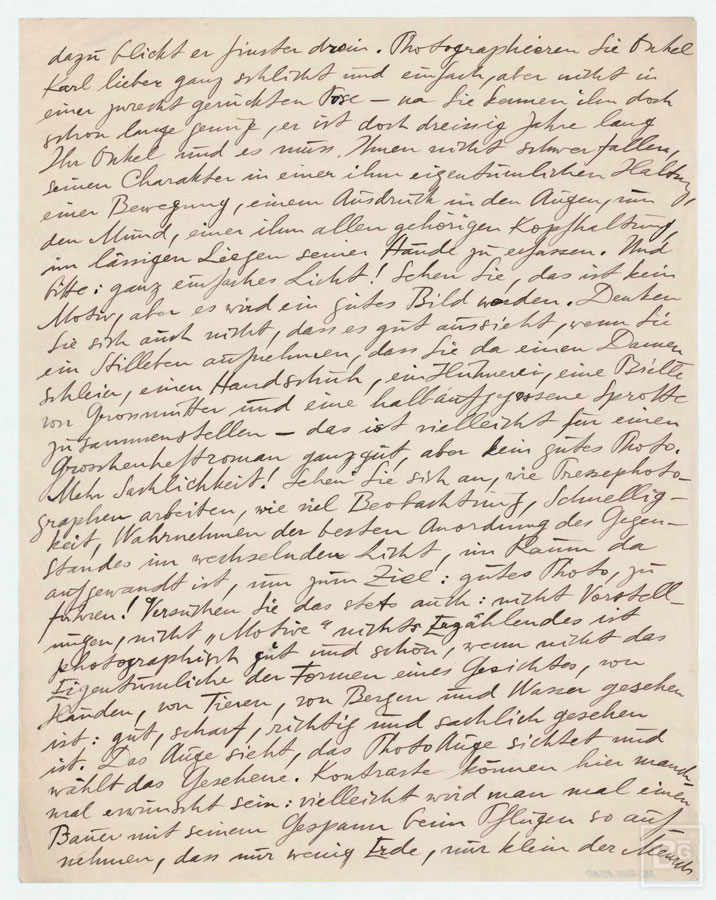 dazu blickt er finster drein. Photographieren Sie Onkel
Karl lieber ganz schlicht und einfach, aber nicht in
einer zurecht gerückten Pose – na Sie kennen ihn doch
schon lange genug, er ist doch dreissig Jahre lang
Ihr Onkel und es muss Ihnen nicht schwer fallen,
seinen Charakter in einer ihm eigentümlichen Haltung,
einer Bewegung, einem Ausdruck in den Augen, um
den Mund, einer ihm allen gehörigen Kopfhaltung,
im lässigen Liegen seiner Hände zu erfassen. Und
bitte: ganz einfaches Licht! Sehen Sie, das ist kein
Motiv, aber es wird ein gutes Bild werden. Denken
Sie sich auch nicht, dass es gut aussieht, wenn Sie
ein Stilleben aufnehmen, dass Sie da einen Damen
schleier, einen Handschuh, ein Hühnerei, eine Brille
von Grossmutter und eine halbaufgegessene Sprotte
zusammenstellen – das ist vielleicht für einen
Groschenheftroman ganz gut, aber kein gutes Photo.
Mehr Sachlichkeit! Sehen Sie sich an, wie Pressephoto-
graphen arbeiten, wie viel Beobachtung, Schnellig-
keit, Wahrnehmen der besten Anordnung des Gegen-
standes im wechselnden Licht, im Raum da
aufgewandt ist, um zum Ziel: gutes Photo, zu
führen! Versuchen Sie das stets auch: nicht Vorstell-
ungen, nicht „Motive“ nichts Erzählendes ist
photographisch gut und schön, wenn nicht das
Eigentümliche der Formen eines Gesichtes, von
Händen, von Tieren, von Bergen und Wasser gesehen
ist: gut, scharf, richtig und sachlich gesehen
ist. Das Auge sieht, das PhotoAuge sichtet und
wählt das Gesehene. Kontraste können hier manch-
mal erwünscht sein: vielleicht wird man mal einen
Bauer mit seinem Gespann beim Pflügen so auf
nehmen, dass nur wenig Erde, nur klein der Mensch
BG